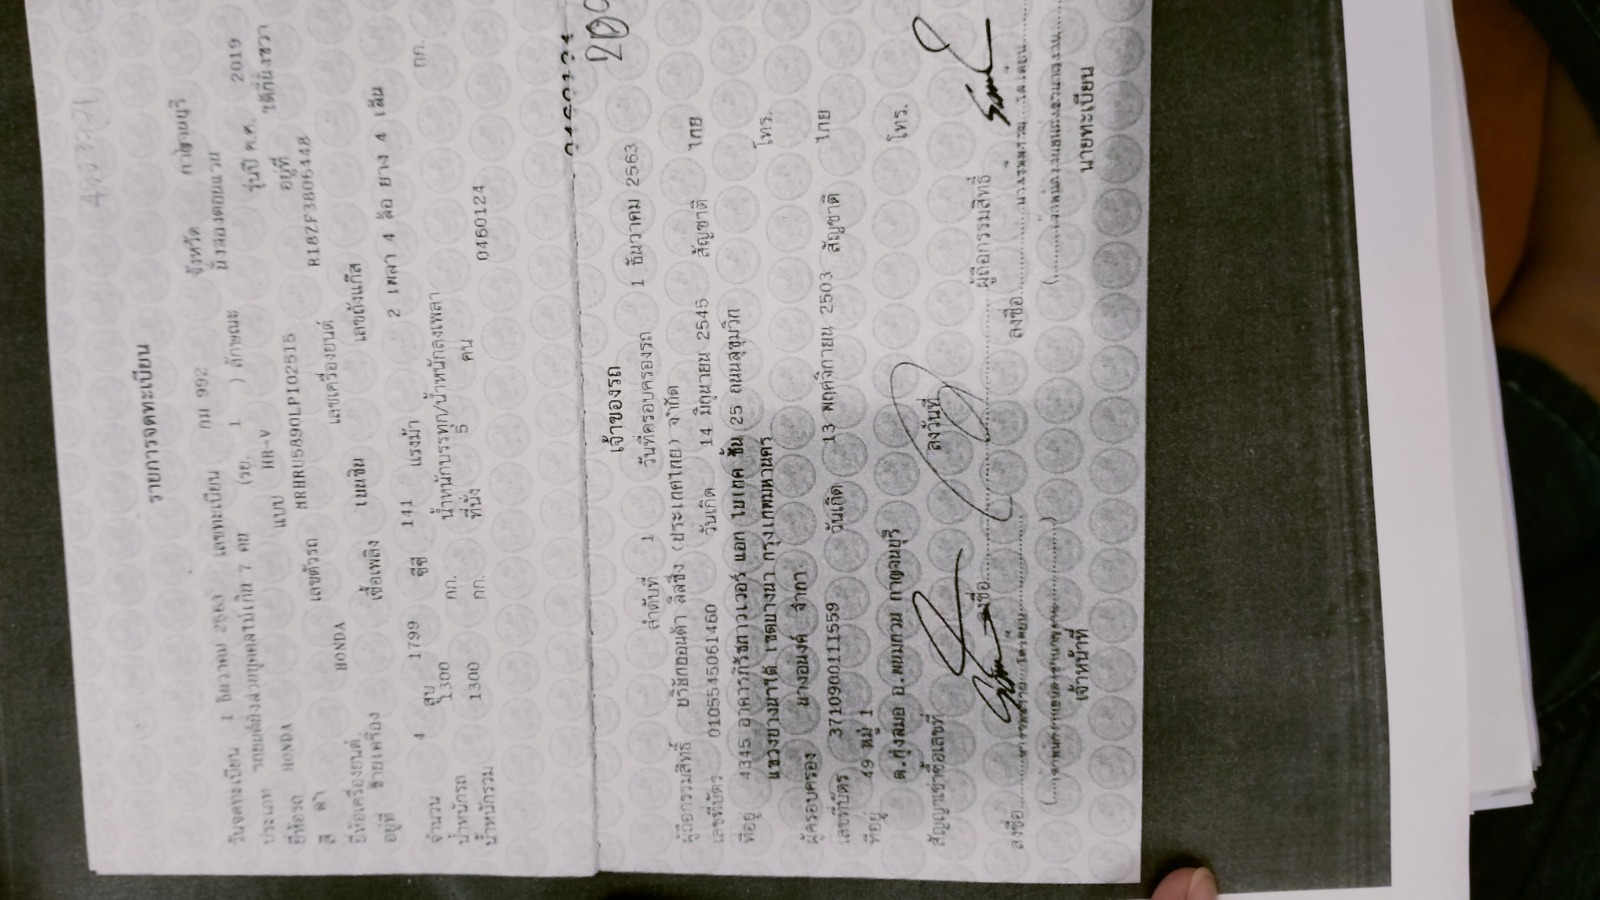 4503721
รายการจดทะเบียน
วันจดทะเบียน 1 ธันวาคม 2563 เลขทะเบียน กม 992 จังหวัด กาญจนบุรี
ประเภท รถยนต์นั่งส่วนบุคคลไม่เกิน 7 คน (รย. 1 ) ลักษณะ นั่งสองตอนแวน
ยี่ห้อรถ HONDA แบบ HR-V รุ่นปี ค.ศ. 2019
สี ดำ เลขตัวรถ MRHRU5890LP102515 อยู่ที่ ใต้ที่นั่งขวา
ยี่ห้อเครื่องยนต์ HONDA เลขเครื่องยนต์ R18ZF3806448
อยู่ที่ ซ้ายเครื่อง เชื้อเพลิง เบนซิน เลขถังแก๊ส
จำนวน 4 สูบ 1799 ซีซี 141 แรงม้า 2 เพลา 4 ล้อ ยาง 4 เส้น
น้ำหนักรถ 1300 กก. น้ำหนักบรรทุก/น้ำหนักลงเพลา กก.
น้ำหนักรวม 1300 กก. ที่นั่ง 5 คน 0460124
เจ้าของรถ
ลำดับที่ 1 วันที่ครอบครองรถ 1 ธันวาคม 2563
ผู้ถือกรรมสิทธิ์ บริษัทฮอนด้า ลีสซิ่ง (ประเทศไทย) จำกัด
เลขที่บัตร 0105545061460 วันเกิด 14 มิถุนายน 2545 สัญชาติ ไทย
ที่อยู่ 4345 อาคารภิรัชทาวเวอร์ แอท ไบเทค ชั้น 25 ถนนสุขุมวิท โทร.
แขวงบางนาใต้ เขตบางนา กรุงเทพมหานคร
ผู้ครอบครอง นางอนงค์ จำกา
เลขที่บัตร 3710900111559 วันเกิด 13 พฤศจิกายน 2503 สัญชาติ ไทย
ที่อยู่ 49 หมู่ 1 โทร.
ต.ทุ่งสมอ อ.พนมทวน กาญจนบุรี
สัญญาเช่าซื้อเลขที่ ลงวันที่
ลงชื่อ ผู้ถือกรรมสิทธิ์
ลงชื่อ ลงชื่อ
เจ้าหน้าที่ นายทะเบียน